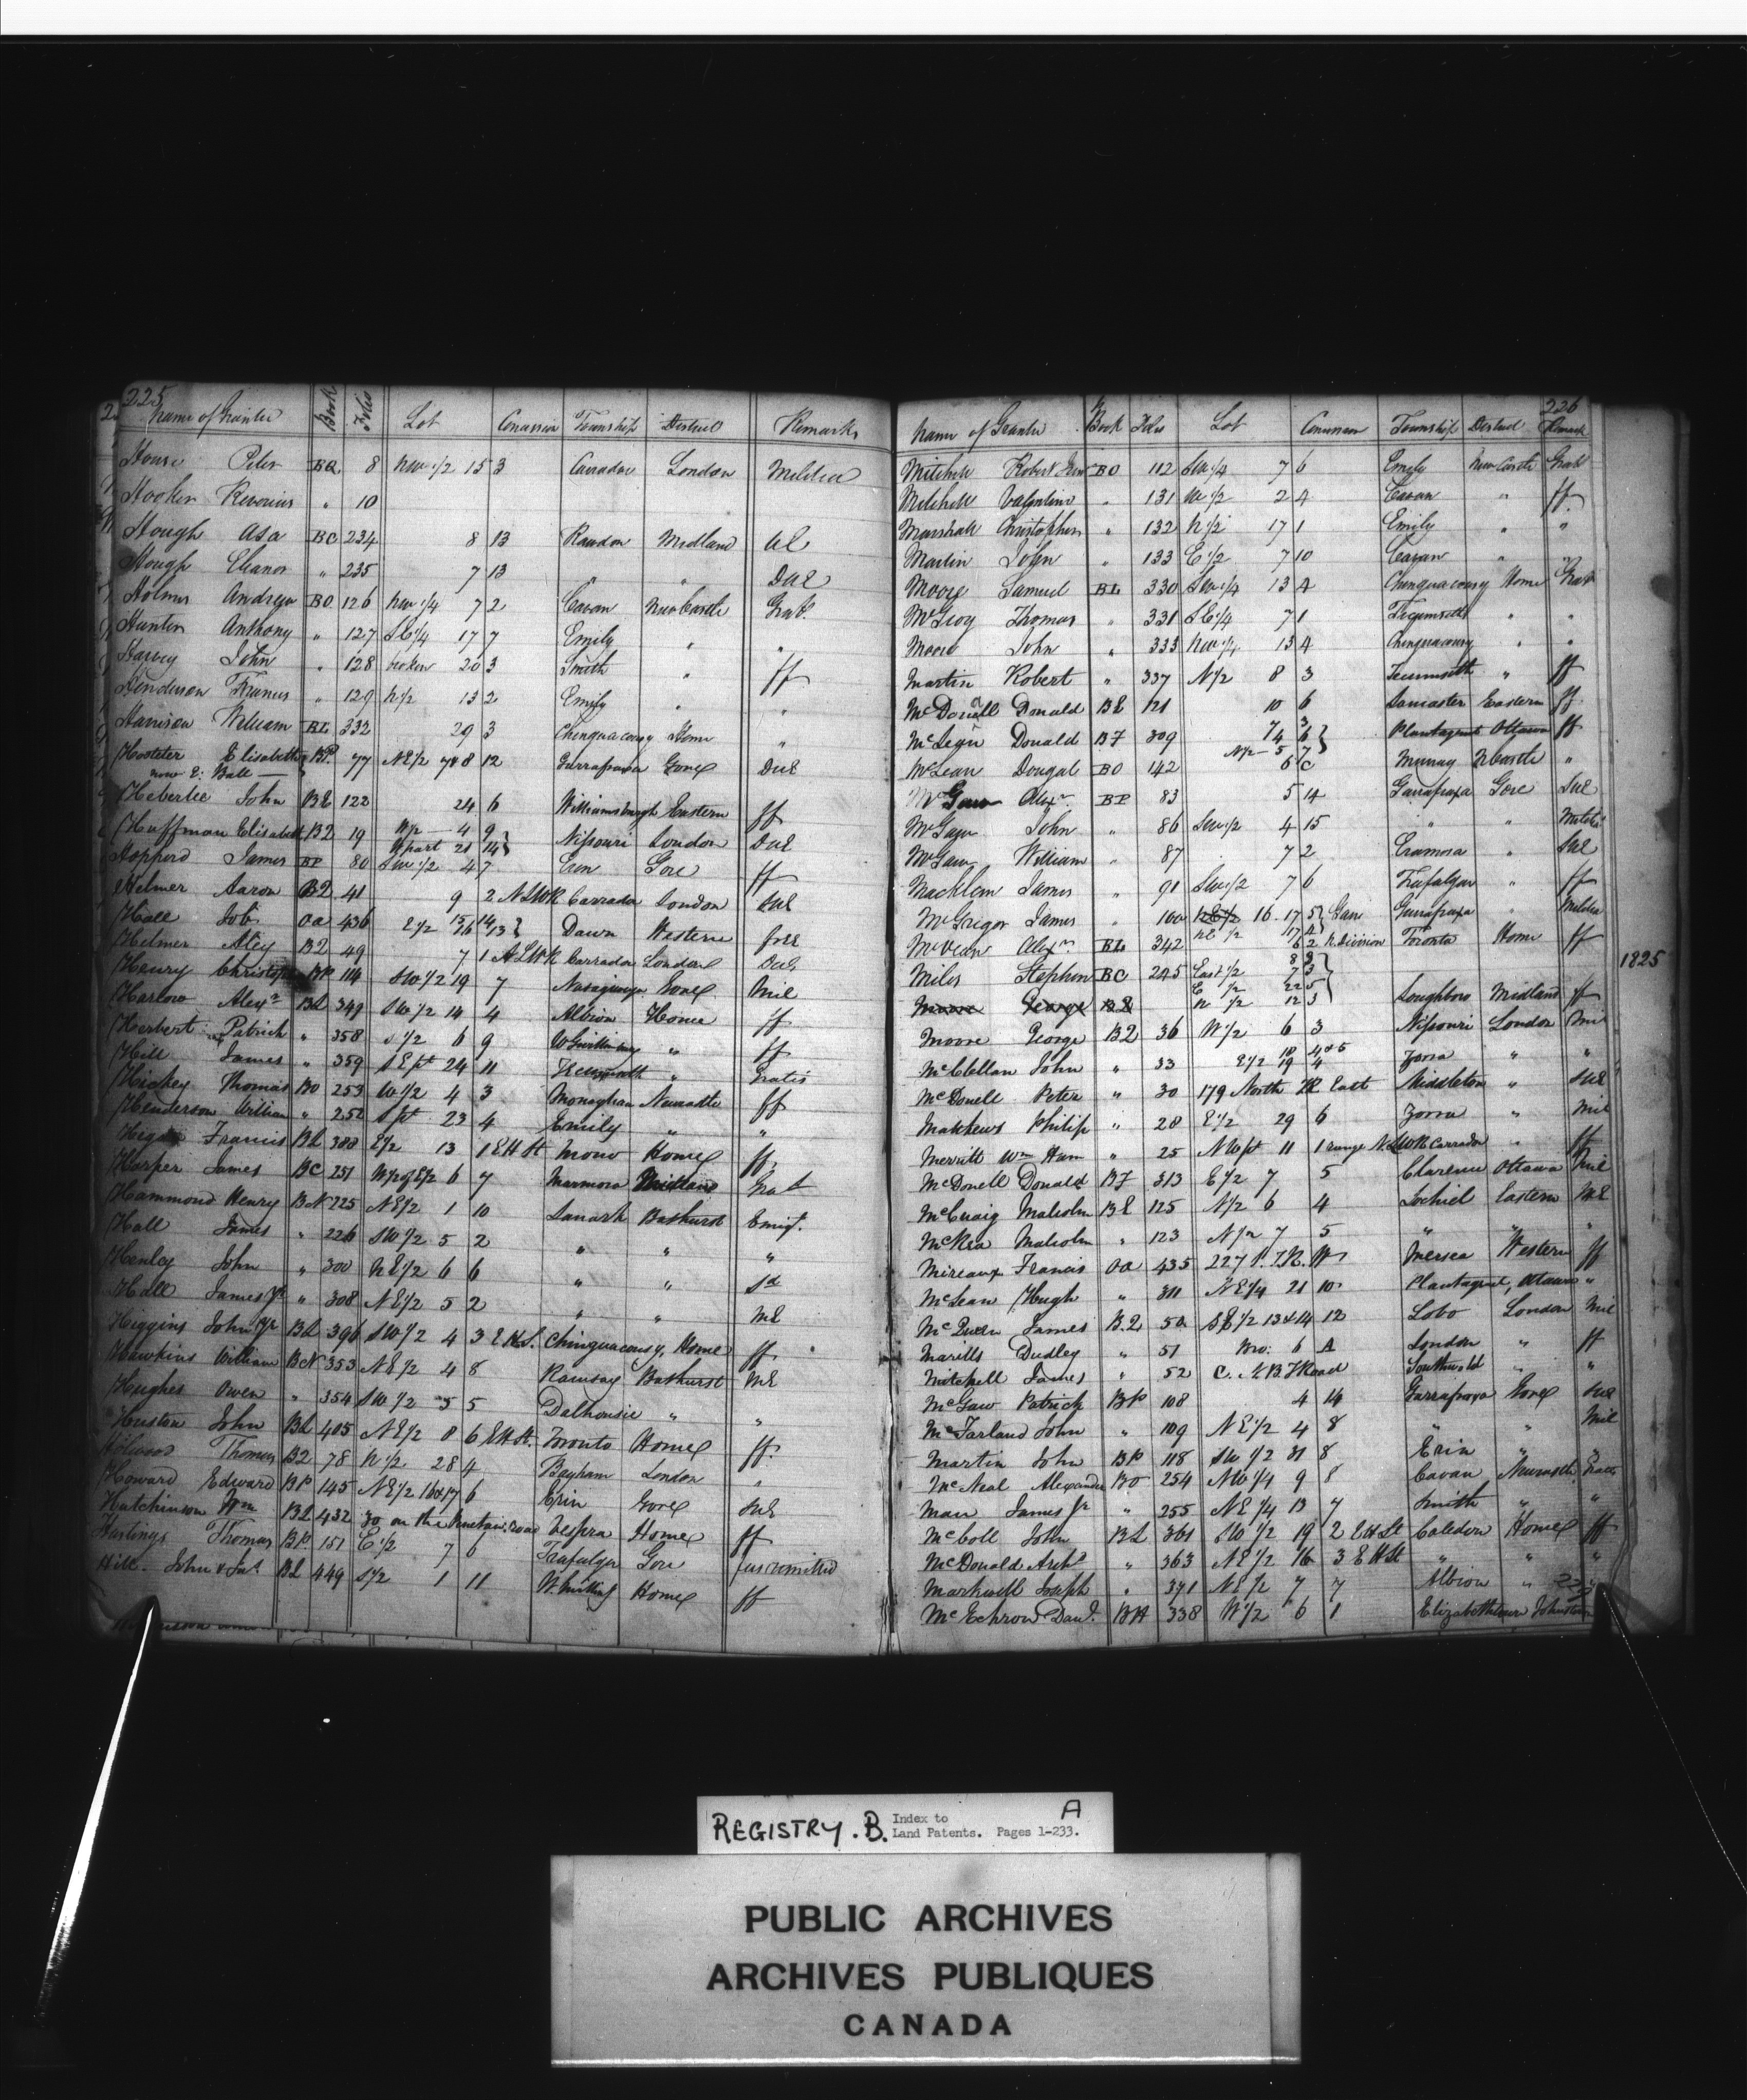 225
Name of Grantee Book Folio Lot Concession Township District Remarks
House Peter BQ 8 NW 1/2 15 3 Caradoc London Militia
Hooker " 10
Hough Asa BC 234 8 13 Rawdon Midland UE
Hough Eleanor " 235 7 13 " DUE
Holmes Andrew BO 126 NW 1/4 7 2 Cavan NewCastle Grat.
Hunter Anthony " 127 SE 1/4 17 7 Emily " "
Harvey John " 128 broken 20 3 Smith " ff
Henderson Francis " 129 N 1/2 13 2 Emily " "
Harrison William BL 332 29 3 Chinguacousy Home "
Elisabeth BP 77 NE 1/2 7 & 8 12 Garrafraxa Gore DUE
now E. Ball
John BE 122 24 6 Williamsburgh Eastern ff
Huffman Elisabeth B2 19 W 1/2 4 9 Nissouri London DUE
part 21 14
James BP 80 SW 1/2 4 7 Erin Gore ff
Helmer Aaron B2 41 9 2 NLWR Carradoc London SUE
Hall Job OA 436 E 1/2 Dawn Western free
Helmer B2 49 7 1 Carradoc London
Henry BP 114 SW 1/2 19 7 Nasagiweya Gore Mil
Harlow Alexr BL 349 SW 1/2 14 4 Albion Home ff
Herbert Patrick " 358 S 1/2 6 9 " ff
Hill James " 359 SE pt 24 11 Tecumseth " Gratis
Hickey Thomas BO 253 W 1/2 4 3 Monaghan Newcastle ff
Henderson William " 252 S pt 23 4 Emily " "
Francis BL 388 E 1/2 13 1 EHSt Mono Home ff
Harper James BC 251 W 1/2 of E 1/2 6 7 Marmora Midland Grat
Hammond Henry BN 225 NE 1/2 1 10 Lanark Bathurst Emigt.
Hall James " 226 SW 1/2 5 2 " " "
Henley John " 300 NE 1/2 6 6 " " Sd
Hall James Jr " 308 NE 1/2 5 2 " " ME
Higgins John Jr BL 396 SW 1/2 4 3 E.H.S. Chinguacousy Home ff
Hawkins William BN 353 NE 1/2 4 8 Ramsay Bathurst ME
Hughes Owen " 354 SW 1/2 5 5 Dalhousie " "
Huston John BL 405 NE 1/2 8 6 EHSt. Toronto Home ff
Thomas B2 78 N 1/2 28 4 Bayham London "
Howard Edward BP 145 NE 1/2 16 & 17 6 Erin Gore SUE
Hutchinson Wm BL 432 30 on the Penetang. road Vespra Home ff
Hastings Thomas BP 151 E 1/2 7 6 Trafalgar Gore fus remitted
Hill John BL 449 S 1/2 1 11 Home ff
226
Name of Grantee Book Folio Lot Concession Township District Remark
Mitchell Robert BO 112 SW 1/4 7 6 Emily NewCastle Grat
Mitchell Valentine " 131 W 1/2 2 4 Cavan " ff
Marshall Christopher " 132 N 1/2 17 1 Emily " "
Martin John " 133 E 1/2 7 10 Cavan " "
Moore Samuel BL 330 SW 1/4 13 4 Chinguacousy Home Grat
McIvoy Thomas " 331 SE 1/4 7 1 Tecumseth " "
Moore John " 333 NW 1/4 13 4 Chinguacousy " "
Martin Robert " 337 N 1/2 8 3 Tecumseth " ff
McDonell Donald BE 121 10 6 Lancaster Eastern ff
Donald BF 309 Plantagenet Ottawa ff
McLean Dougal BO 142 6 C Murray NCastle "
McGaw Alexr BP 83 5 14 Garrafraxa Gore SUE
John " 86 SW 1/2 4 15 " " Militia
McGaw William " 87 7 2 Eramosa " SUE
Macklem James " 91 SW 1/2 7 6 Trafalgar " ff
McGregor James " 100 16. 17 5 Garrafraxa " Militia
McVean Alexr BL 342 6 2 N. Division Toronto Home ff
1825
Miles Stephen BC 245 East 1/2 Loughboro Midland ff
Moore George BE
Moore George B2 36 W 1/2 6 3 Nissouri London Mil
McClellan John " 33 E 1/2 Zorra " "
McDonell Peter " 30 179 North TR East Middleton " SUE
Matthews Philip " 28 E 1/2 29 6 Zorra " Mil
Merritt Wm Ham " 25 NW pt 11 1 range N.LWR Carradoc " ff
McDonell Donald BF 313 E 1/2 7 5 Clarence Ottawa Mil
McCuaig Malcolm BE 125 N 1/2 6 4 Lochiel Eastern ME
McRea Malcolm " 123 N 1/2 7 5 " " "
Mireaux Francis OA 435 227 Mersea Western ff
McLean Hugh " 311 NE 1/4 21 10 Plantagenet, Ottawa "
McQueen James B.2. 50 SE 1/2 13 & 14 12 Lobo London Mil
Maritts Dudley " 51 6 A London " ff
Mitchell James " 52 C. N.B.T Road Southwold " "
McGaw Patrick BP 108 4 14 Garrafraxa Gore SUE
McFarland John " 109 NE 1/2 4 8 " " Mil
Martin John BP 118 SW 1/2 31 8 Erin " "
McNeal Alexander BO 254 NW 1/4 9 8 Cavan Newcastle Gratis
Man James Jr " 255 NE 1/4 13 7 Smith " "
McColl John BL 361 SW 1/2 19 2 EHSt Caledon Home ff
McDonald Archd " 363 NE 1/2 16 3 EHSt " " "
Markwell Joseph " 371 NE 1/2 7 7 Albion "
McEchrow Danl. BH 338 W 1/2 6 1 Elizabethtown Johnstown
REGISTRY. B. Index to Land Patents. Pages 1-233. A
PUBLIC ARCHIVES
ARCHIVES PUBLIQUES
CANADA